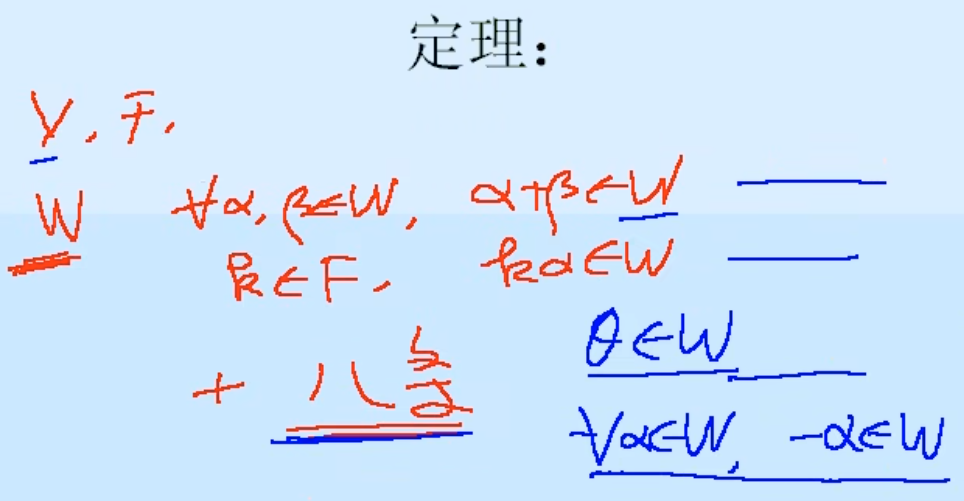 定理：
V, F,
W ∀α, β∈W, α+β∈W
k∈F, kα∈W
+ 八条
θ∈W
∀α∈W, -α∈W